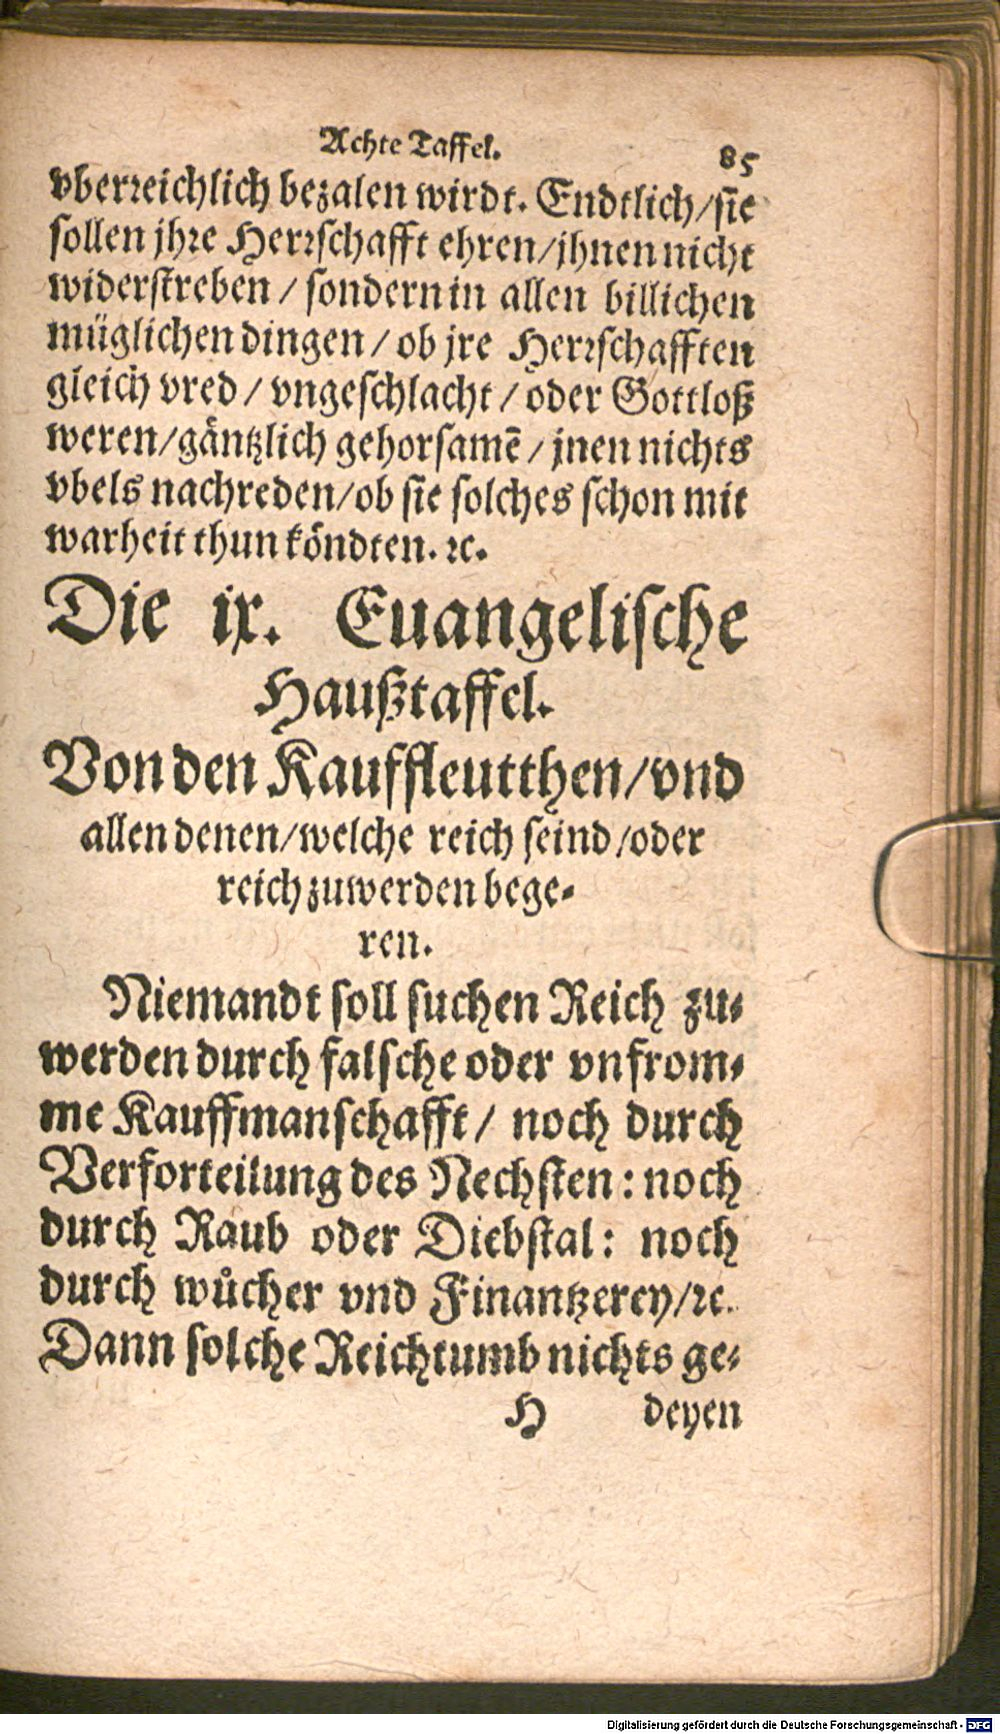 Achte Taffel. 85
vberreichlich bezalen wirdt. Endtlich/sie
sollen jhre Herrschafft ehren/jhnen nicht
widerstreben/ sondern in allen billichen
müglichen dingen/ ob jre Herrschafften
gleich vred/ vngeschlacht/ oder Gottloß
weren/gäntzlich gehorsamē/ jnen nichts
vbels nachreden/ob sie solches schon mit
warheit thun köndten. ꝛc.
Die ix. Euangelische
Haußtaffel.
Von den Kauffleutthen/vnd
allen denen/welche reich seind/oder
reich zuwerden bege-
ren.
Niemandt soll suchen Reich zu-
werden durch falsche oder vnfrom-
me Kauffmanschafft/ noch durch
Verforteilung des Nechsten: noch
durch Raub oder Diebstal: noch
durch wůcher vnd Finantzerey/ꝛc.
Dann solche Reichtumb nichts ge-
H deyen
Digitalisierung gefördert durch die Deutsche Forschungsgemeinschaft - DFG